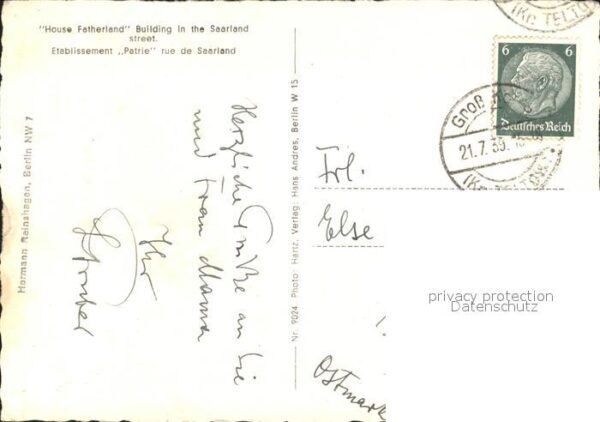 "House Fatherland" Building in the Saarland
street.
Etablissement „Patrie" rue de Saarland
Hermann Reinshagen, Berlin NW 7
Herzliche Grüße an Sie
und Frau Mama
Ihr
Nr. 9024 Photo: Hartz, Verlag: Hans Andres, Berlin W 15
(Kr. TELTOW
6 6
Deutsches Reich
Groß
21.7.39.
(Kr. TELTOW)
Frl.
Else
privacy protection
Datenschutz
Ostmark